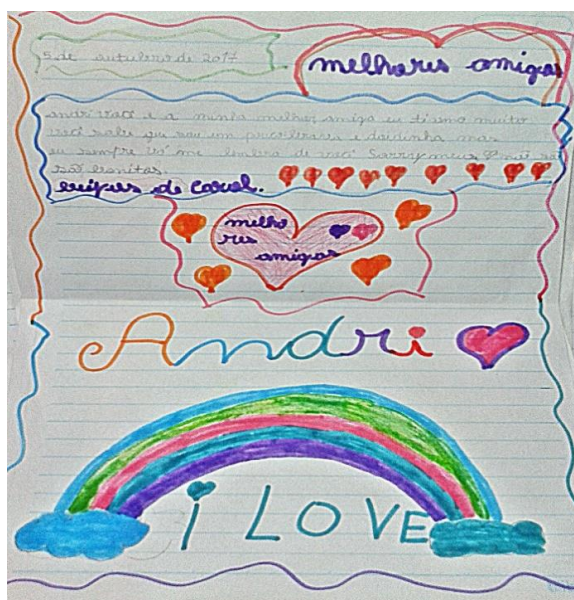 5 de outubro de 2017
melhores amigas
andri você e a minha melhor amiga eu ti amo muito
você sabe que sou um e doidinha mas
eu sempre me lembro de você Sorry meus não
são bonitos
de
melho
res
amigas
Andri
i LOVE